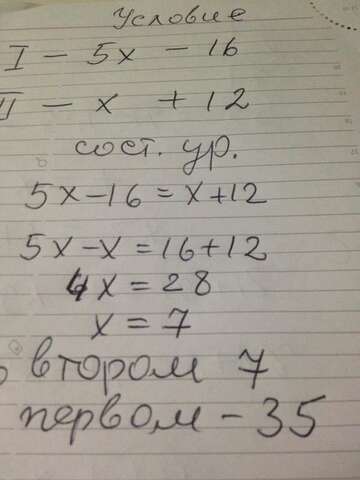 Условие
I - 5x - 16
II - x + 12
сост. ур.
5x-16=x+12
5x-x=16+12
4x=28
x=7
втором 7
первом - 35